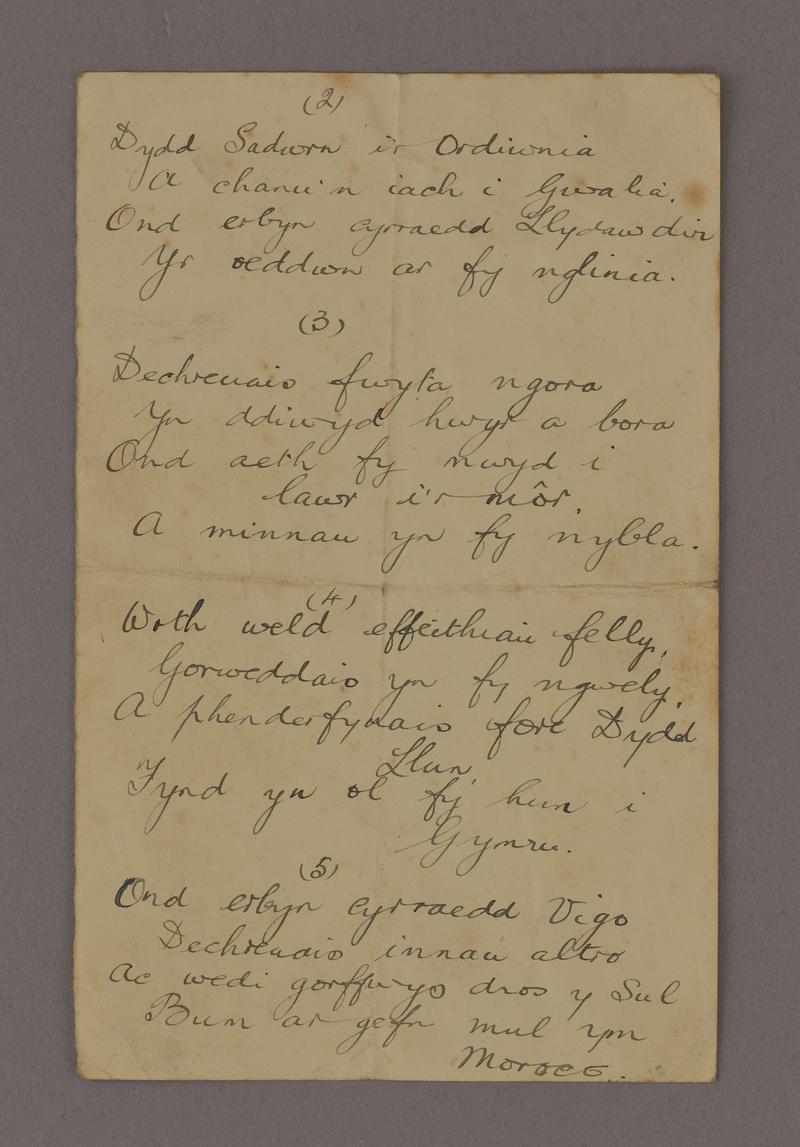 (2)
Dydd Sadwrn i'r Ordiwnia
A chanu'n iach i Gwalia.
Ond erbyn cyrraedd Llydaw dir
Yr oeddwn ar fy nglinia.
(3)
Dechreuais fwyta ngora
Yn ddiwyd hwyr a bora
Ond aeth fy nwyd i
lawr i'r môr.
A minnau yn fy nybla.
(4)
Wrth weld effeithiau felly,
Gorweddais yn fy ngwely,
A phenderfynais fore Dydd
Llun
Fynd yn ol fy hun i
Gymru.
(5)
Ond erbyn cyrraedd Vigo
Dechreuais innau altro
Ac wedi gorffwys dros y Sul
Bum ar gefn mul ym
Moroco.